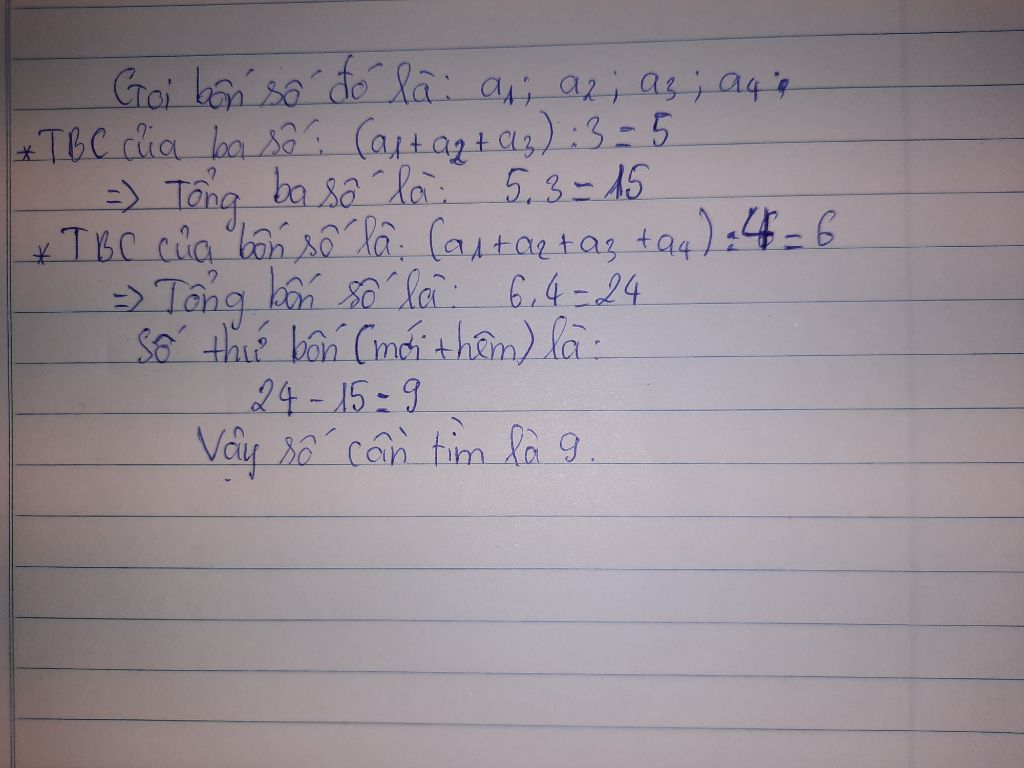 Gọi bốn số đó là: a1; a2; a3; a4.
* TBC của ba số: (a1+a2+a3):3=5
=> Tổng ba số là: 5.3=15
* TBC của bốn số là: (a1+a2+a3+a4):4=6
=> Tổng bốn số là: 6.4=24
Số thứ bốn (mới thêm) là:
24-15=9
Vậy số cần tìm là 9.